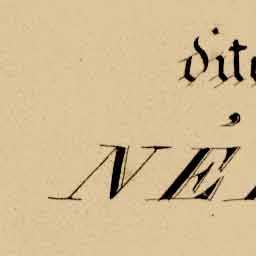 dite
NÉ